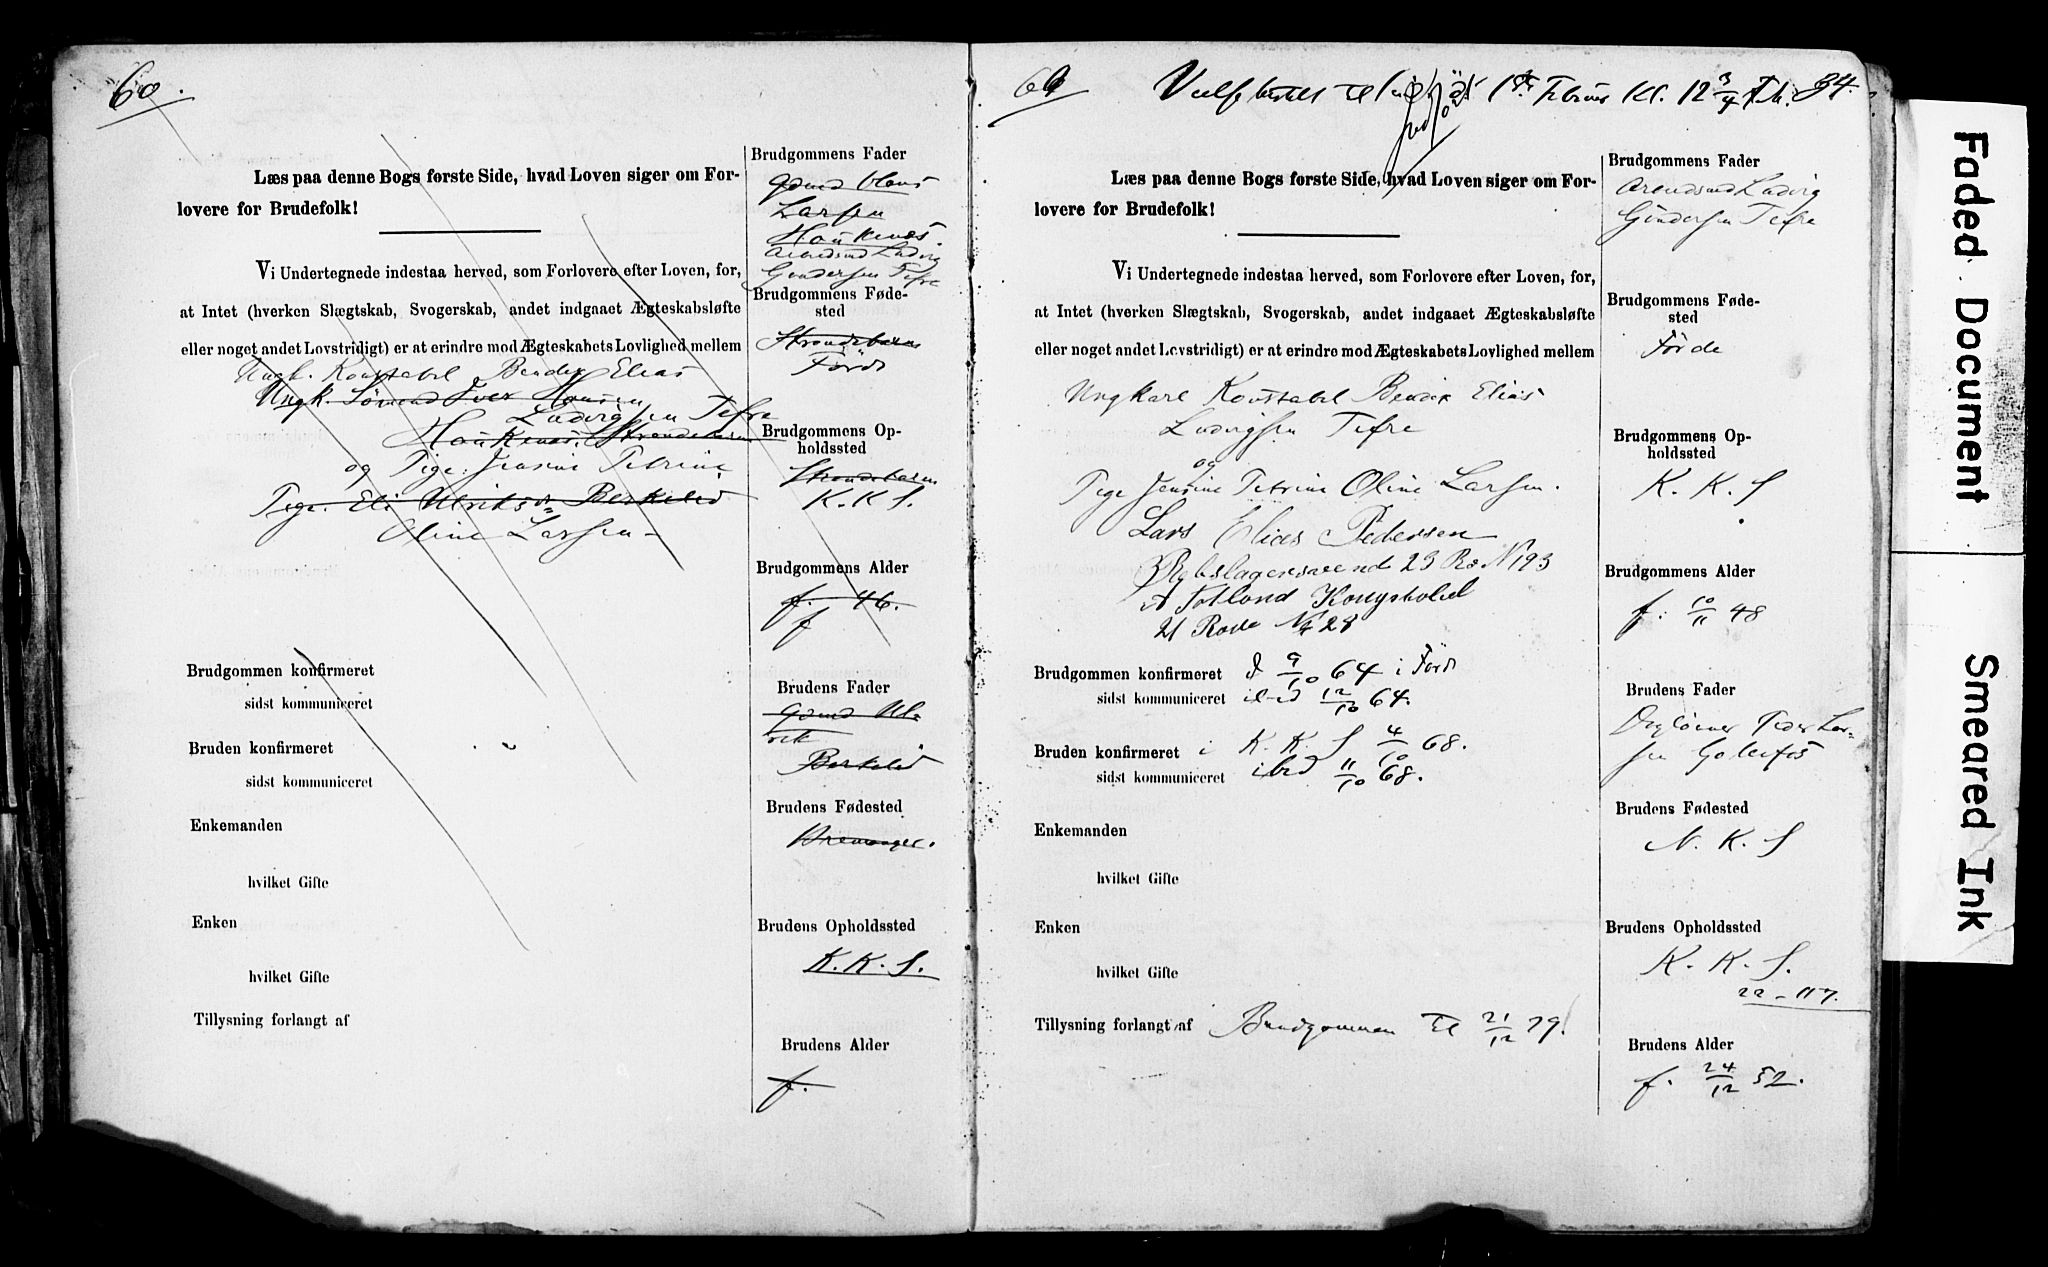 60.
Læs paa denne Bogs første Side, hvad Loven siger om For-
lovere for Brudefolk!
Vi Undertegnede indestaa herved, som Forlovere efter Loven, for,
at Intet (hverken Slægtskab, Svogerskab, andet indgaaet Ægteskabsløfte
eller noget andet Lovstridigt) er at erindre mod Ægteskabets Lovlighed mellem
Ungk. Konstabel Bendix Elias
Ungk. Sömand Iver Hansen
Ludvigsen Tefre
Haukenæs, Strandebarm
og Pige. Jensine Petrine
Pige. Eli Ulriksd. Berkeled
Oline Larsen
Brudgommen konfirmeret
sidst kommuniceret
Bruden konfirmeret
sidst kommuniceret
Enkemanden
hvilket Gifte
Enken
hvilket Gifte
Tillysning forlangt af
Brudgommens Fader
Gdmd Hans
Larsen
Haukenæs.
Arendsmd Ludvig
Gundersen Tefre
Brudgommens Føde-
sted
Strandebarm
Förde
Brudgommens Op-
holdssted
Strandebarm
K. K. S.
Brudgommens Alder
f. 46.
f
Brudens Fader
Gdmd Ul-
rik
Berkeled
Brudens Fødested
Bremanger.
Brudens Opholdssted
K. K. S.
Brudens Alder
f.
60 til 1ste Februar Kl. 12 3/4 84.
Læs paa denne Bogs første Side, hvad Loven siger om For-
lovere for Brudefolk!
Vi Undertegnede indestaa herved, som Forlovere efter Loven, for,
at Intet (hverken Slægtskab, Svogerskab, andet indgaaet Ægteskabsløfte
eller noget andet Lovstridigt) er at erindre mod Ægteskabets Lovlighed mellem
Ungkarl Konstabel Bendix Elias
Ludvigsen Tefre
og
Pige Jensine Petrine Oline Larsen.
Lars Elias Pedersen
Rebslagersvend 23 Ro N 193
A Totland Kongsholid
21 Rode N 28
Brudgommen konfirmeret d 9/10 64 i Förde
sidst kommuniceret ibid 12/10 64.
Bruden konfirmeret i K. K. S 4/10 68.
sidst kommuniceret ibid 11/10 68.
Enkemanden
hvilket Gifte
Enken
hvilket Gifte
Tillysning forlangt af Brudgommen til 21/12 79.
Brudgommens Fader
Arendsmd Ludvig
Gundersen Tefre
Brudgommens Føde-
sted
Förde
Brudgommens Op-
holdssted
K. K. S
Brudgommens Alder
f: 10/11 48
Brudens Fader
Peder Lar-
sen
Brudens Fødested
N. K. S
Brudens Opholdssted
K. K. S.
22-117.
Brudens Alder
f. 24/12 52.
Faded Document
Smeared Ink